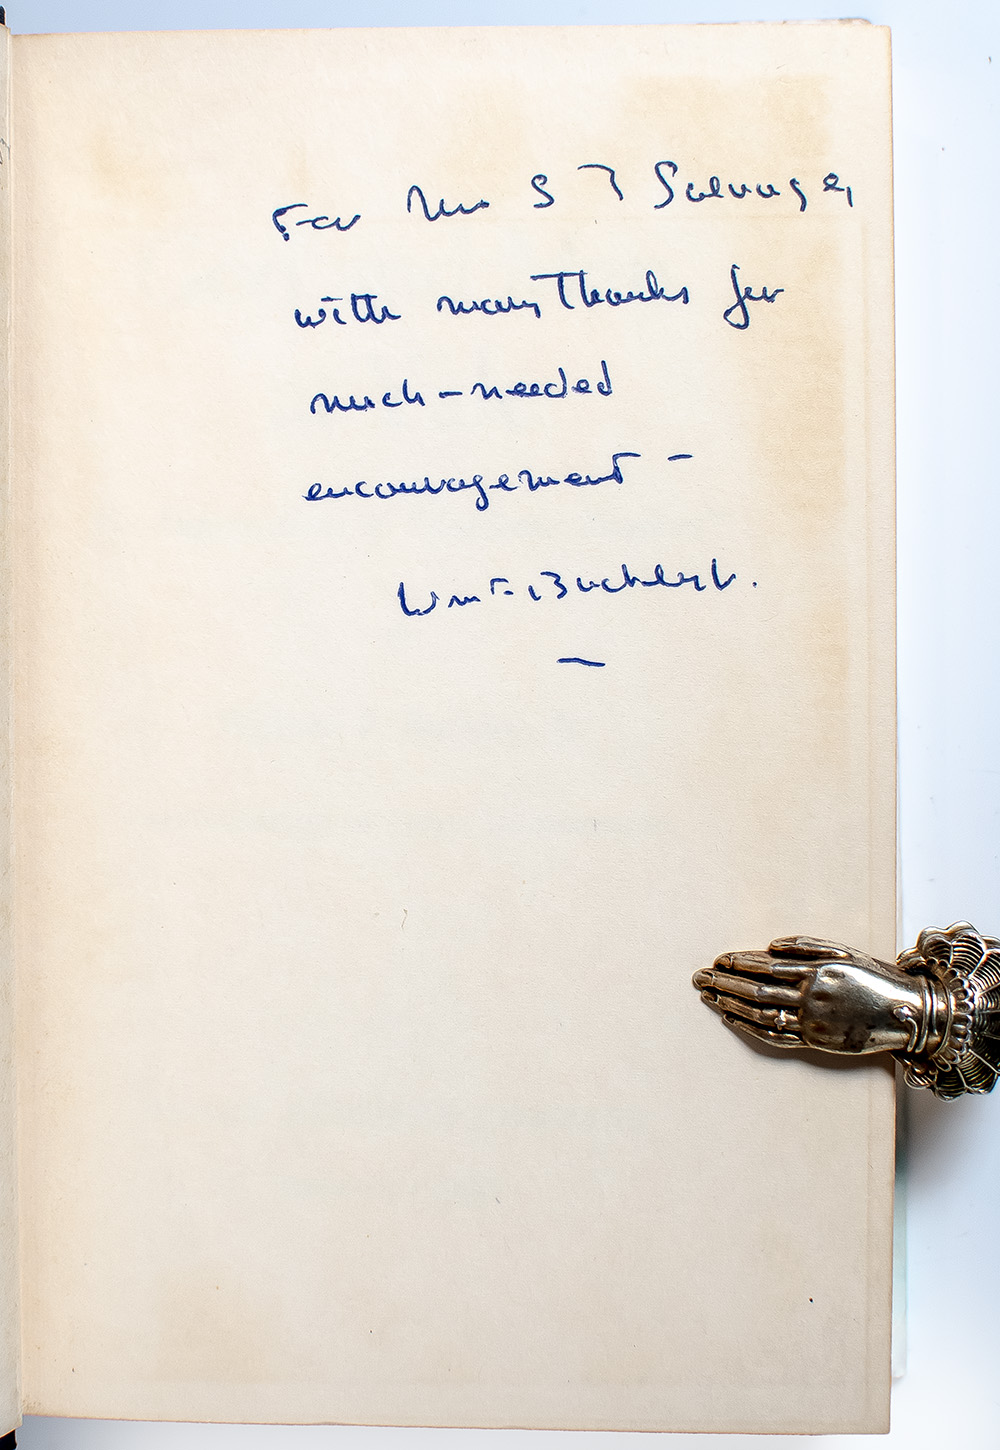 For Mr S T Salvage,
with many Thanks for
much-needed
encouragement –
Wm F. Buckley Jr.